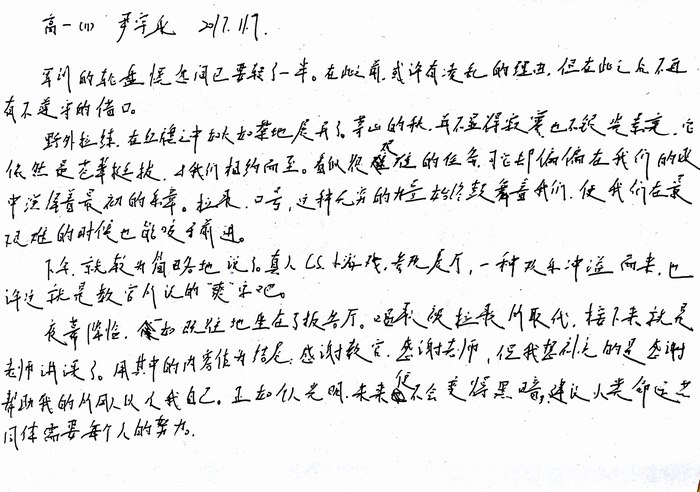 高一(1) 2017.11.7.
军训的轮盘恍然间已要转了一半。在此之前,或许有凌乱的理由,但在此之后不再
有不遵守的借口。
野外拉练,在丘陵之中如火如荼地展开了。茅山的秋,并不显得寂寥也不锐光素亮,它
依然是苍翠挺拔,与我们相约而至。看似很艰难的任务,可它却偏偏在我们的
中演绎着最初的乐章。拉歌、口号,这种无穷的力量始终鼓舞着我们,使我们在最
艰难的时候也能咬牙前进。
下午,就较为简略地说了。真人CS,小游戏,参观展厅,一种欢乐冲溢而来,也
许这就是教官所说的“爽”字吧。
夜幕降临,一如既往地坐在了报告厅。唱歌被拉歌所取代,接下来就是
老师讲演了。用其中的内容作为结尾:感谢教官,感谢老师,但我想补充的是感谢
帮助我的所有人以及我自己。正如个人光明,未来便不会变得黑暗,建设人类命运共
同体需要每个人的努力。